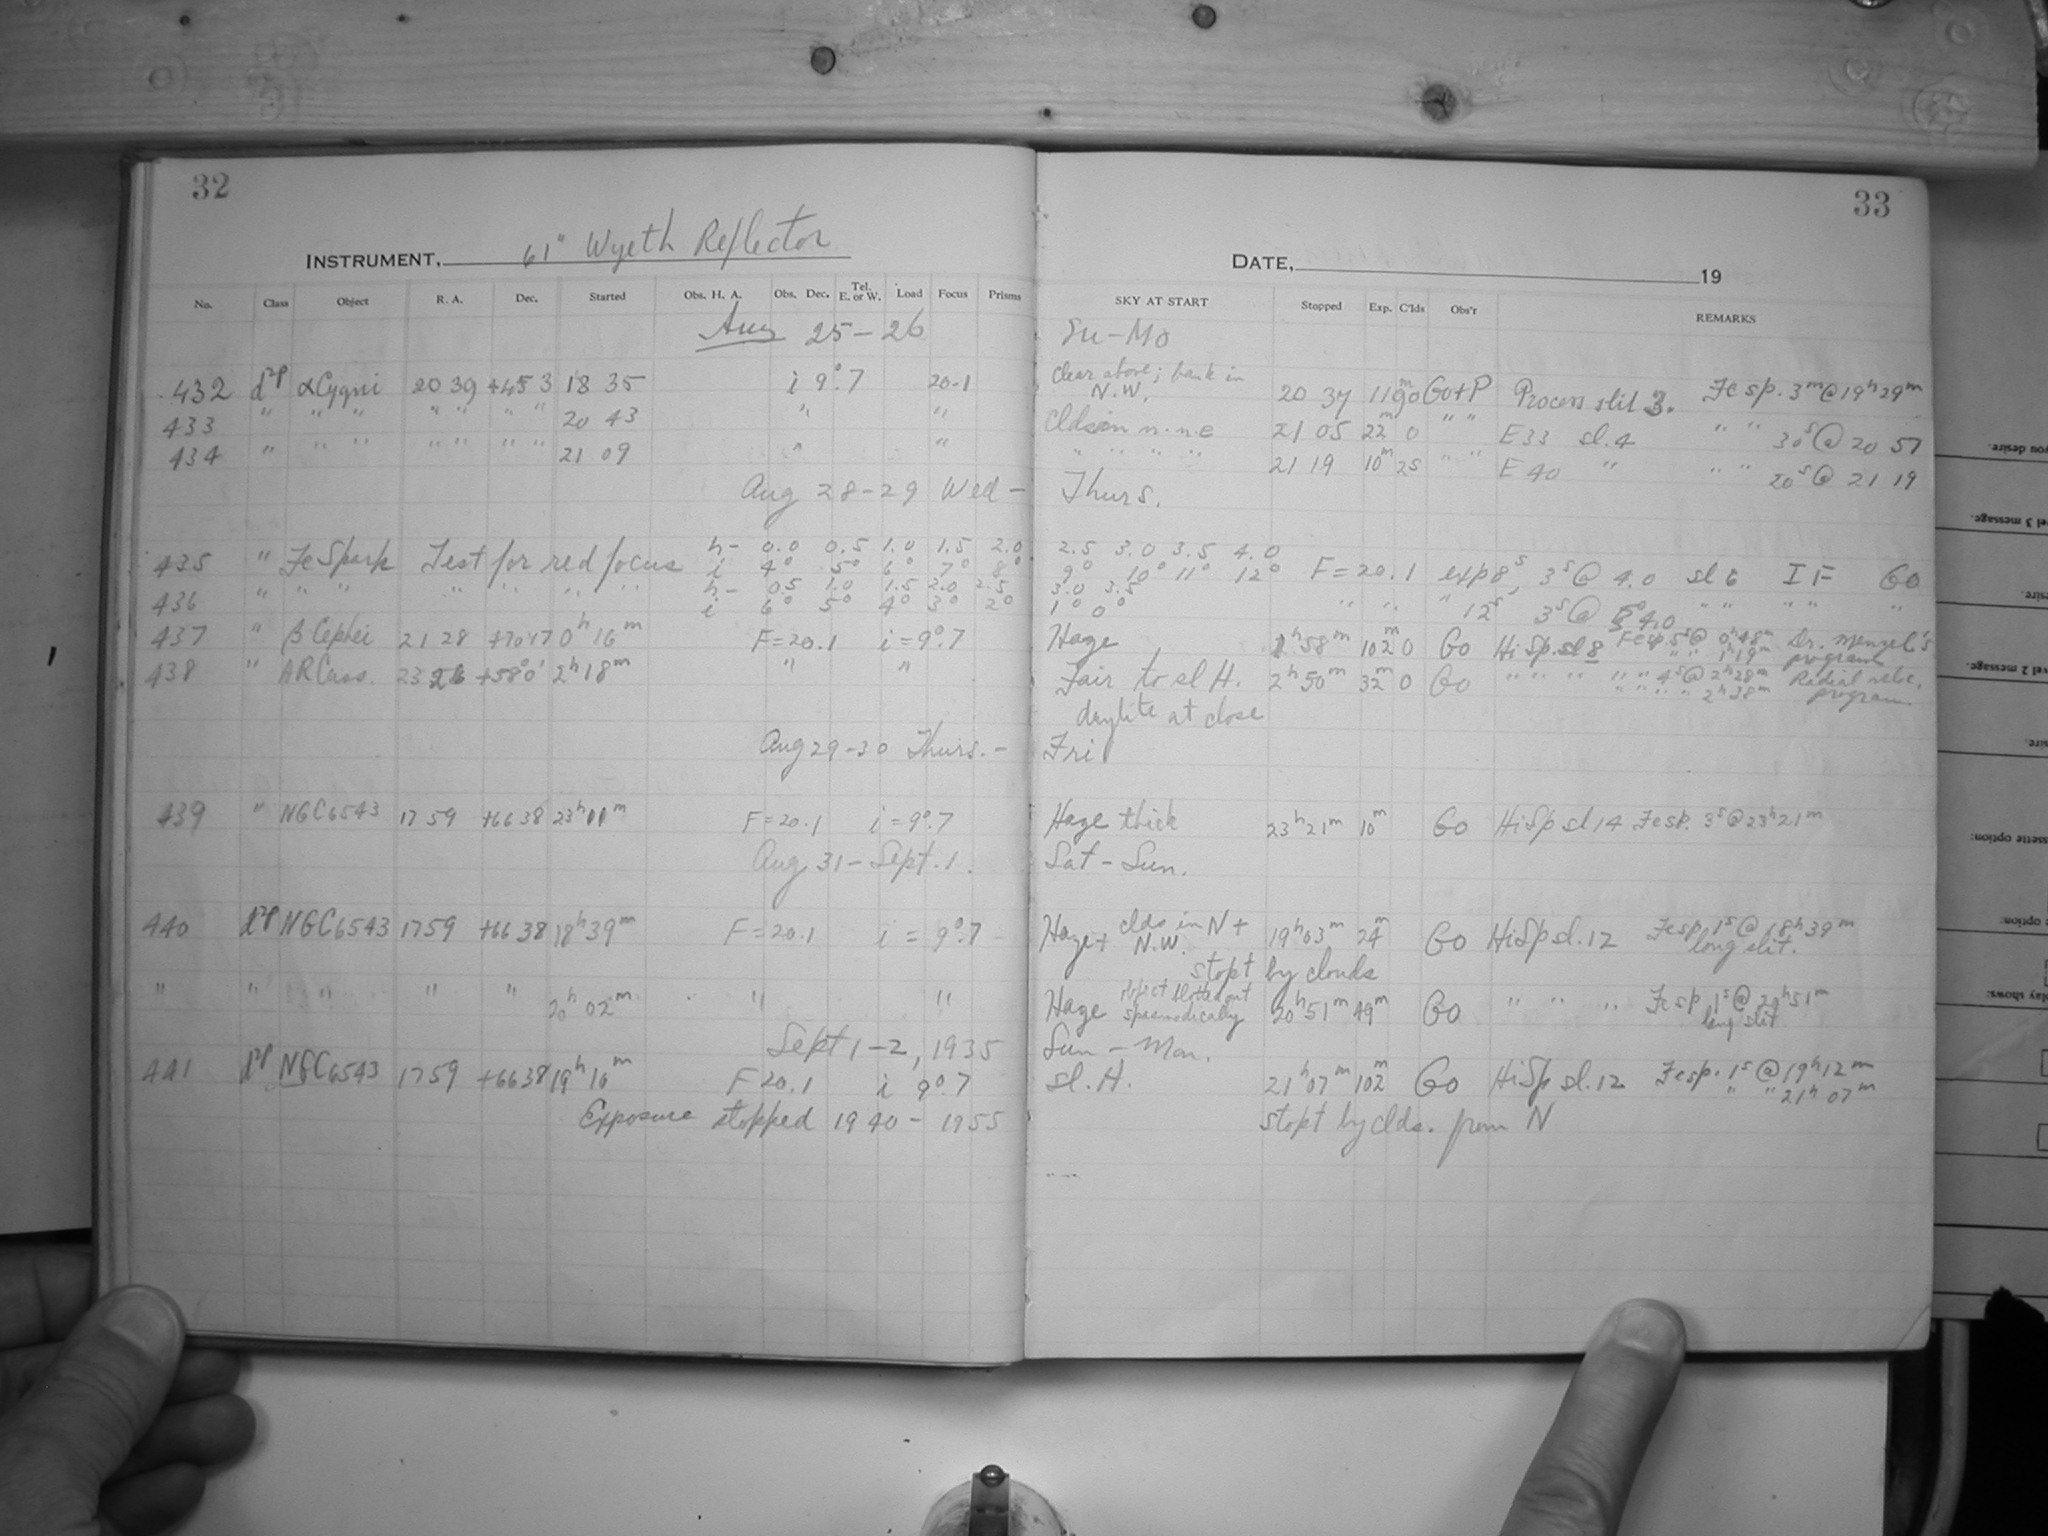 32
33
INSTRUMENT, 61" Wyeth Reflector
DATE, 19
No. Class Object R. A. Dec. Started Obs. H. A. Obs. Dec. Tel. E. or W. Load Focus Prisms SKY AT START Stopped Exp. C'lds Obs'r REMARKS
Aug 25-26 Su-Mo
432 d2p αCygni 20 39 +45 3 18 35 i 9°.7 20.1 Clear above; bank in N.W. 20 37 119m 0 Go+P Process slit 3. Fe sp. 3m @ 19h29m
433 " " " " " " " 20 43 " " Clds in n.n.e 21 05 22m 0 " " E33 sl.4 " " 30s@ 20 57
434 " " " " " " " 21 09 " " " " " " 21 19 10m 25 " " E40 " " " 20s@ 21 19
Aug 28-29 Wed- Thurs.
435 " Fe Spark Test for red focus h- 0.0 0.5 1.0 1.5 2.0 2.5 3.0 3.5 4.0
i 4° 5° 6° 7° 8° 9° 10° 11° 12° F=20.1 exp 8s, 3s@ 4.0 sl 6 I F Go
436 " " " " " " " h- 0.5 1.0 1.5 2.0 2.5 3.0 3.5
i 6° 5° 4° 3° 2° 1° 0° " " " 12s, 3s@ 4.0 " " " " "
437 " β Cephei 21 28 +70 17 0h 16m F=20.1 i=9°.7 Haze 1h58m 102m 0 Go HiSp. sl 8 Fe sp. 5s@ 0h48m Dr. Menzel's
" " 1h19m program
438 " AR Cass. 23 26 +58 0' 2h18m " " Fair to sl H. 2h50m 32m 0 Go " " " " " 4s@ 2h28m Radial veloc.
daylite at close " " " " 2h38m program
Aug 29-30 Thurs.- Fri
439 " NGC6543 17 59 +66 38 23h11m F=20.1 i=9°.7 Haze thick 23h21m 10m Go HiSp sl 14 Fe sp. 3s@23h21m
Aug 31-Sept.1. Sat-Sun.
440 d2p NGC6543 17 59 +66 38 18h39m F=20.1 i = 9°.7 Haze+ clds in N+ N.W. 19h03m 24m Go HiSp sl.12 Fe sp. 1s@ 18h39m
stopt by clouds long slit.
" " " " " 20h 02m " " Haze object blotted out spasmodically 20h51m 49m Go " " " Fe sp 1s@ 20h51m
long slit
Sept 1-2, 1935 Sun-Mon.
441 d2p NGC6543 17 59 +66 38 19h 16m F 20.1 i 9°.7 sl. H. 21h07m 102m Go HiSp sl.12 Fe sp. 1s@19h12m
" " 21h 07m
Exposure stopped 19 40 - 19 55 stopt by clds. from N